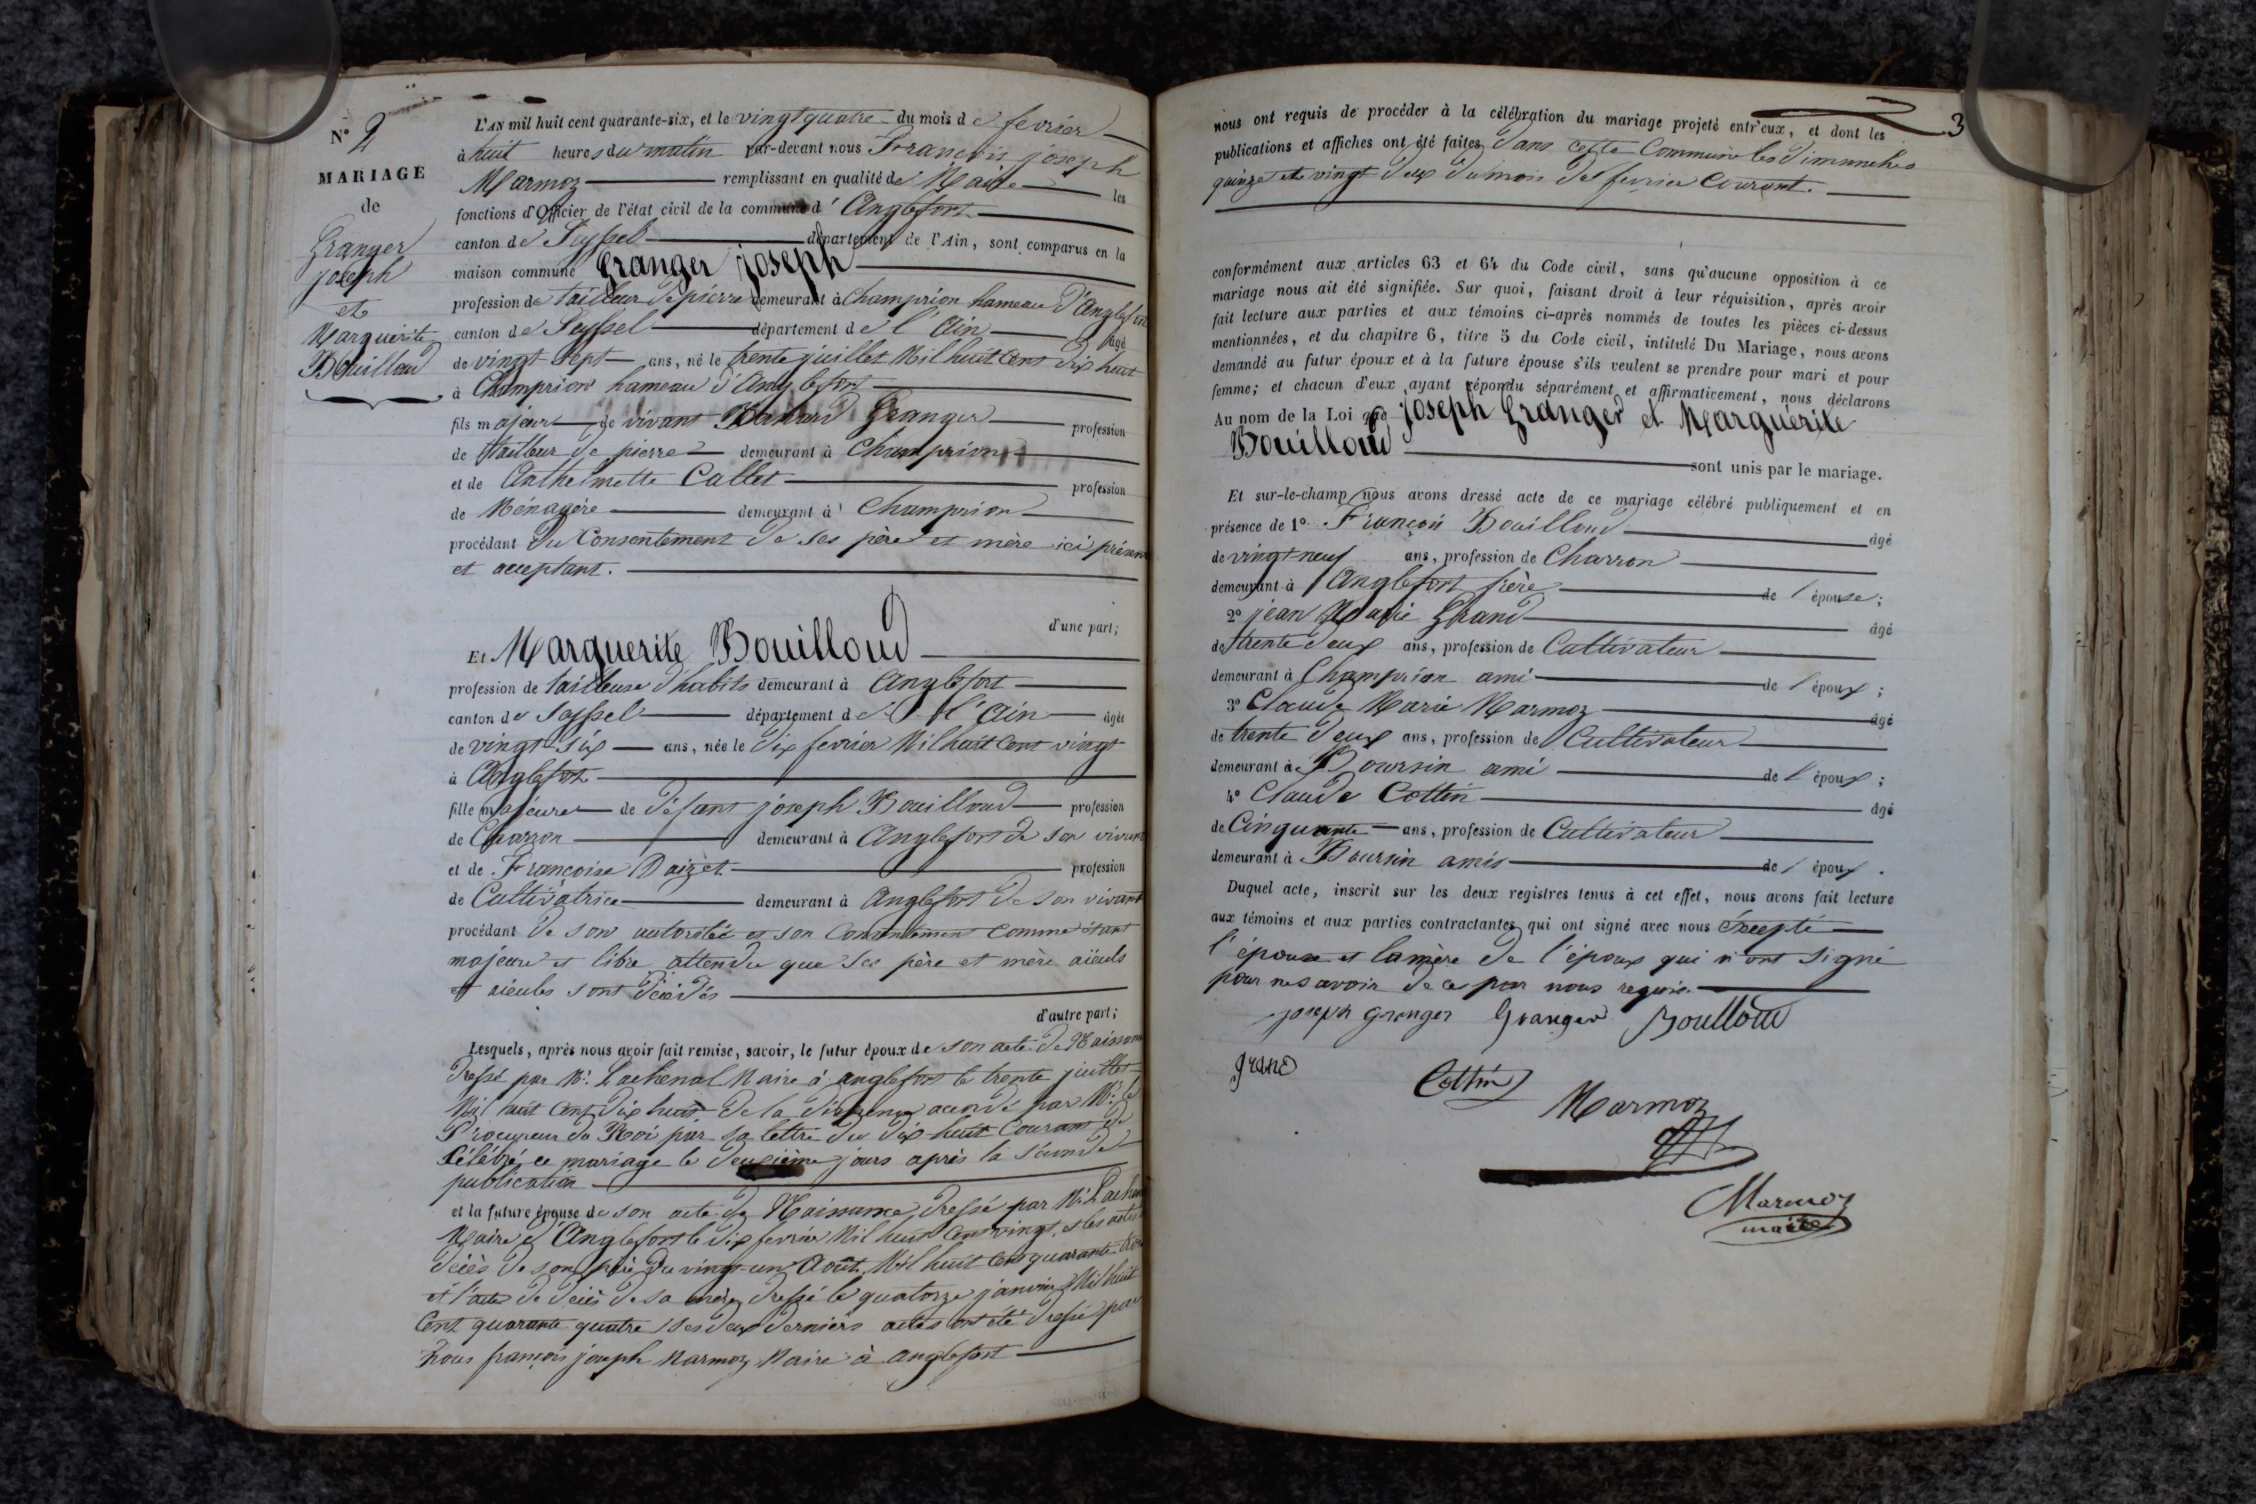 N° 2
MARIAGE
de
Granger
joseph
et
Marguerite
Bouilloud
L'AN mil huit cent quarante-six, et le vingt quatre du mois de fevrier
à huit heures du matin par-devant nous François joseph
Marmoz remplissant en qualité de Maire les
fonctions d'Officier de l'état civil de la commune d'Anglefort
canton de Seyssel département de l'Ain, sont comparus en la
maison commune Granger joseph
profession de tailleur de pierre demeurant à Champrion hameau d'Anglefort
canton de Seyssel département de l'Ain âgé
de vingt sept ans, né le trente juillet Mil huit Cent dix huit
à Champrion hameau d'Anglefort
fils majeur de vivant Granger profession
de tailleur de pierre demeurant à Champrion
et de Anthelmette Callet profession
de Ménagère demeurant à Champrion
procédant du Consentement de ses père et mère ici présens
et acceptant.
d'une part;
Et Marguerite Bouilloud
profession de tailleuse d'habits demeurant à Anglefort
canton de Seyssel département de l'Ain âgée
de vingt six ans, née le dix fevrier Mil huit Cent vingt
à Anglefort
fille majeure de défunt joseph Bouilloud profession
de Charron demeurant à Anglefort de son vivant
et de Françoise profession
de Cultivatrice demeurant à Anglefort de son vivant
procédant de son autorité et son Consentement comme étant
majeure et libre attendu que ses père et mère aïeuls
et aïeules sont décédés
d'autre part;
Lesquels, après nous avoir fait remise, savoir, le futur époux de son acte de Naissance
dressé par Mr. Lachenal Maire à anglefort le trente juillet
Mil huit Cent dix huit de la dispense accordé par Mr. le
Procureur du Roi par sa lettre du dix huit Courant de
Célébré ce mariage le deuxième jours après la seconde
publication
et la future épouse de son acte de Naissance dressé par Mr. Lachenal
Maire d'Anglefort le dix fevrier Mil huit Cent vingt, et les actes
décès de son père du vingt un Août Mil huit Cent quarante
et l'acte de décès de sa mère dressé le quatorze janvier Mil huit
Cent quarante quatre ses deux derniers actes ont été dressé par
Nous françois joseph Marmoz Maire à Anglefort
3
nous ont requis de procéder à la célébration du mariage projeté entr'eux, et dont les
publications et affiches ont été faites dans cette Commune les dimanches
quinze et vingt deux du mois de fevrier Courant.
conformément aux articles 63 et 64 du Code civil, sans qu'aucune opposition à ce
mariage nous ait été signifiée. Sur quoi, faisant droit à leur réquisition, après avoir
fait lecture aux parties et aux témoins ci-après nommés de toutes les pièces ci-dessus
mentionnées, et du chapitre 6, titre 5 du Code civil, intitulé Du Mariage, nous avons
demandé au futur époux et à la future épouse s'ils veulent se prendre pour mari et pour
femme; et chacun d'eux ayant répondu séparément et affirmativement, nous déclarons
Au nom de la Loi que joseph Granger et Marguerite
Bouilloud sont unis par le mariage.
Et sur-le-champ nous avons dressé acte de ce mariage célébré publiquement et en
présence de 1° François Bouilloud âgé
de vingt neuf ans, profession de Charron
demeurant à Anglefort frère de l'épouse;
2° jean Marie Grand âgé
de trente deux ans, profession de Cultivateur
demeurant à Champrion ami de l'époux;
3° Claude Marie Marmoz âgé
de trente deux ans, profession de Cultivateur
demeurant à Boursin ami de l'époux;
4° Claude Cottin âgé
de Cinquante ans, profession de Cultivateur
demeurant à Boursin amis de l'époux.
Duquel acte, inscrit sur les deux registres tenus à cet effet, nous avons fait lecture
aux témoins et aux parties contractantes qui ont signé avec nous éxcepté
l'épouse et la mère de l'époux qui n'ont signé
pour ne savoir de ce par nous requis.
joseph granger Granger Boulloud
grand Cottin Marmoz
Marmoz
maire